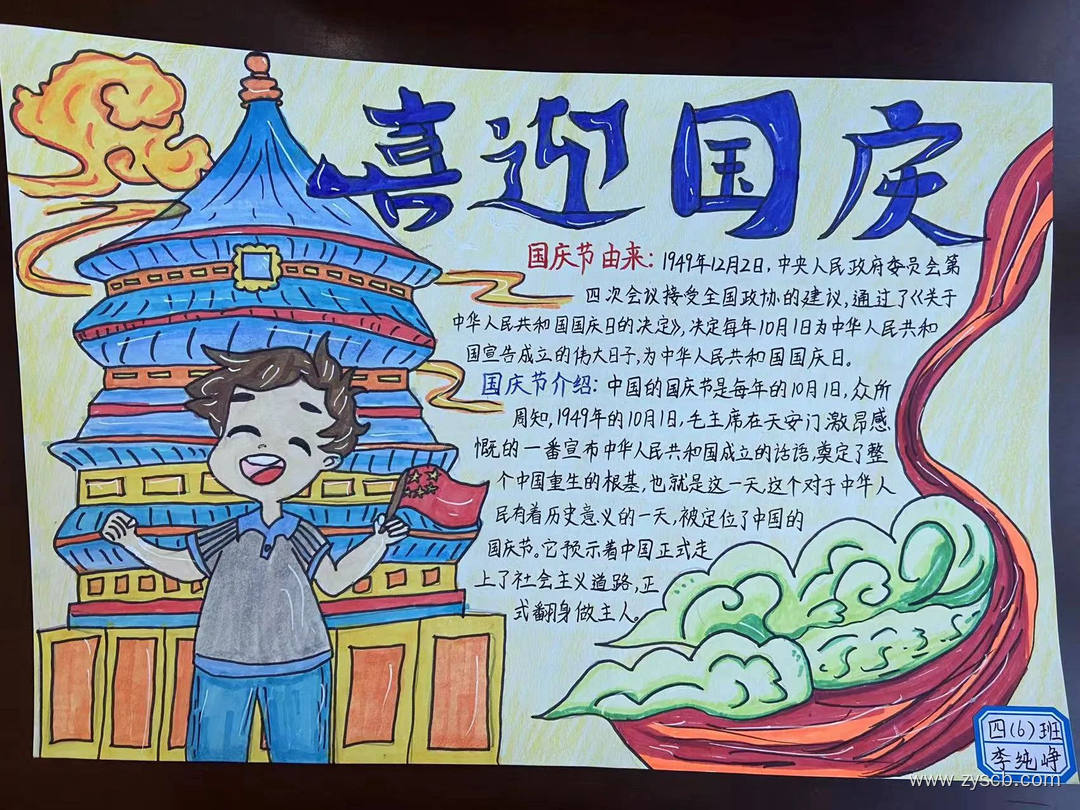 喜迎国庆
国庆节由来：1949年12月2日，中央人民政府委员会第
四次会议接受全国政协的建议，通过了《关于
中华人民共和国国庆日的决定》，决定每年10月1日为中华人民共和
国宣告成立的伟大日子，为中华人民共和国国庆日。
国庆节介绍：中国的国庆节是每年的10月1日，众所
周知，1949年的10月1日，毛主席在天安门激昂感
慨的一番宣布中华人民共和国成立的话语，奠定了整
个中国重生的根基，也就是这一天，这个对于中华人
民有着历史意义的一天，被定位了中国的
国庆节。它预示着中国正式走
上了社会主义道路，正
式翻身做主人。
四(6)班
李纯峥
www.zyscb.com